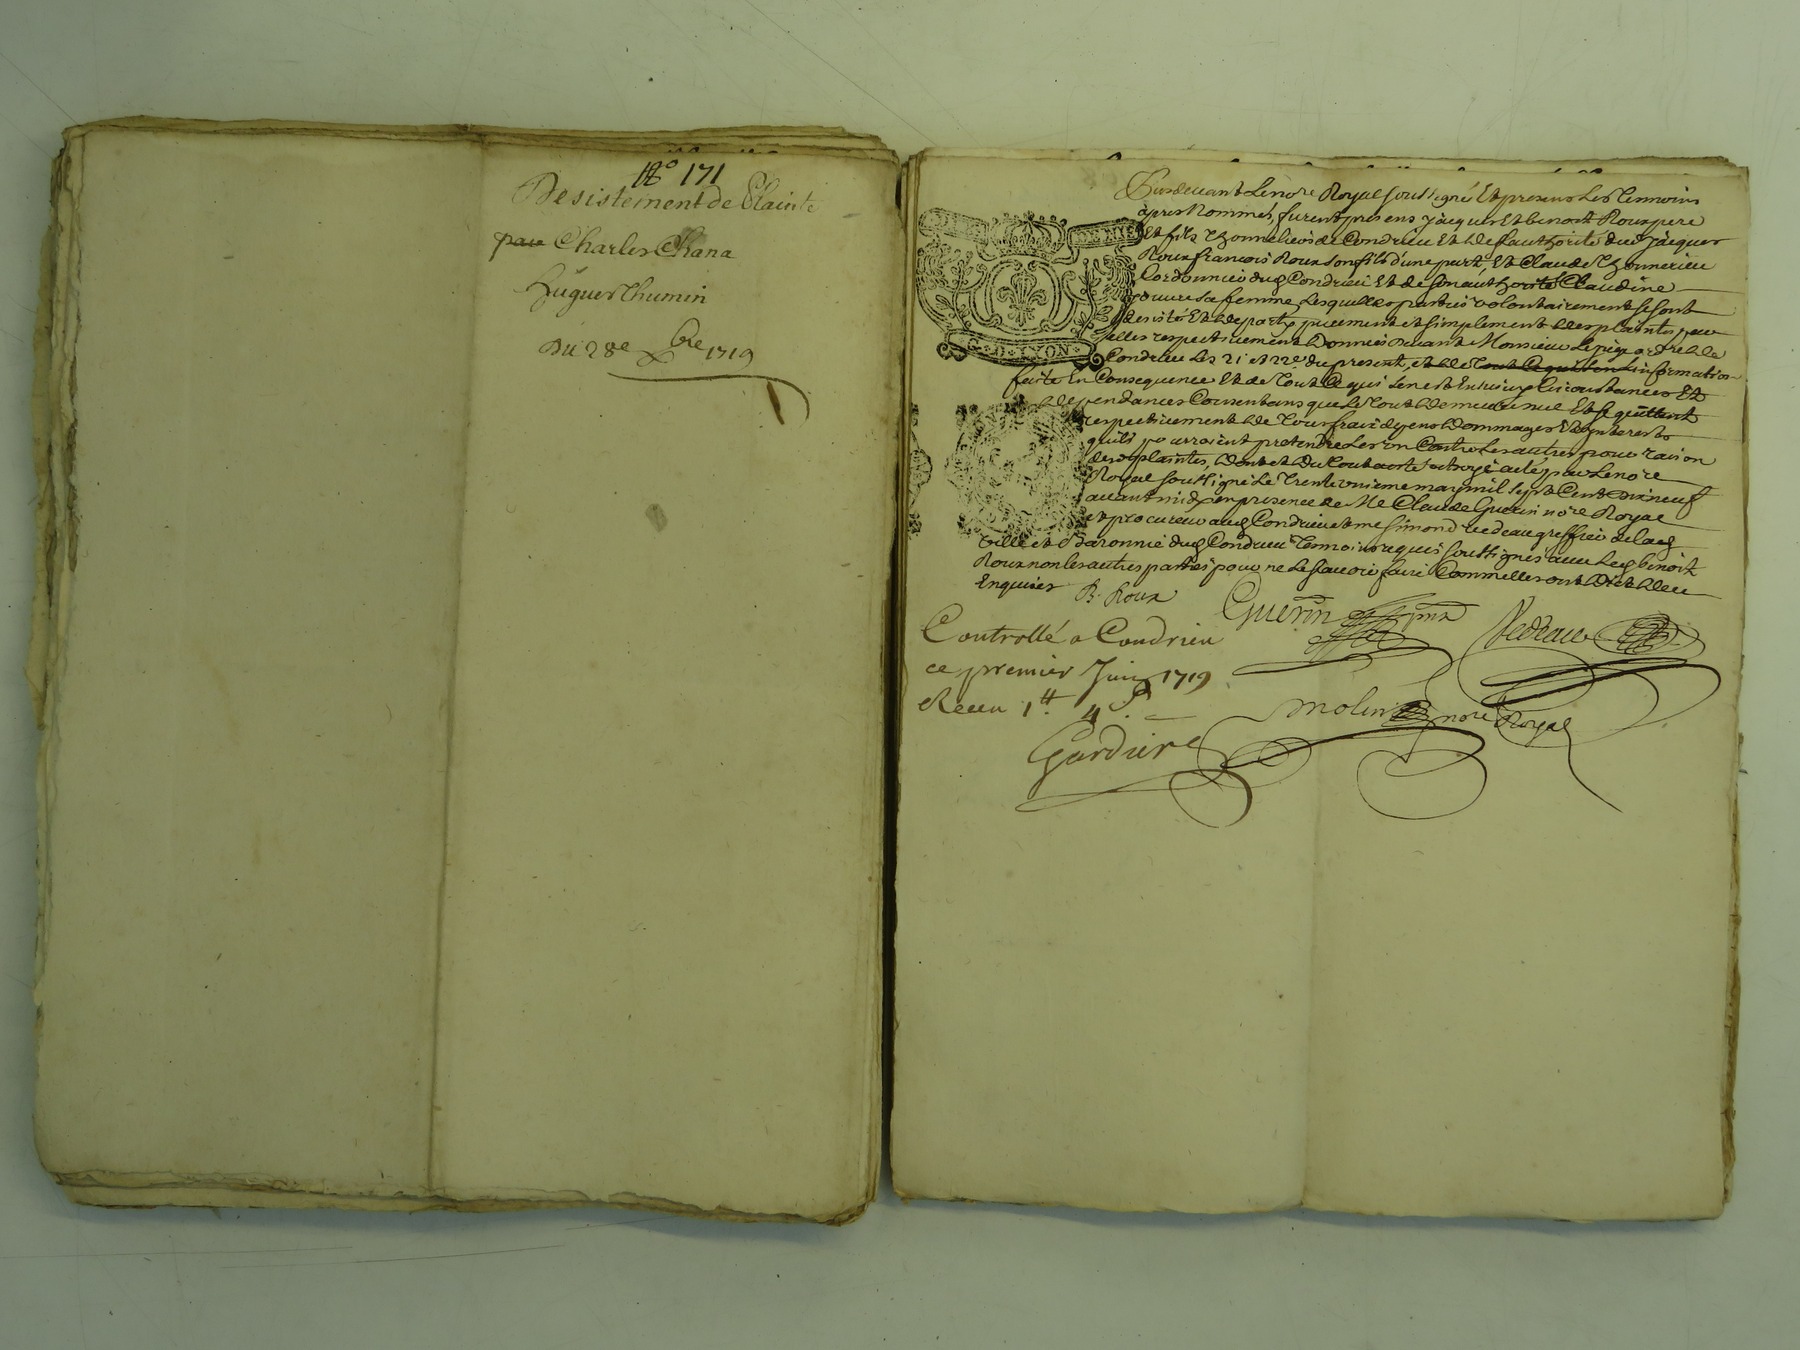 No 171
Desistement de Plainte
par Charles Chana
Hugues Thumin
Du 28e Xbre 1719
Pardevant Le nore Royal soussigné Et presens Les Temoins
apres Nommés, furent presens Jacques Et benoit Roux pere
Et fils Thonneliers de Condrieu Et de L'authorité dud Jacques
Roux francois Roux son fils d'une part, Et Claude Thonnerieu
Cordonnier dud Condrieu Et de son authorité Claudine
sa femme, Lesquelles parties volontairement se sont
desistés Et departy purement et simplement des plaintes par
elles respectivement Données devant Monsieur Le juge ordre de
Condrieu Les 21 et 22e du present, et de Tout Ce qui sen L'information
faite En Consequence Et de Tout Ce qui sen est Ensuivy Circonstances Et
dependances Consentans que Le Tout demeure nul Et se quittent
respectivement de Tous frais depens Dommages Et interests
quils pourroient pretendre Les uns Contre Les autres pour raison
desd plaintes, Dont et Du Tout acte octroyé par Le nore
Royal soussigné Le Trente unieme may mil sept Cent Dix neuf
avant midy en presence de Me Claude Guerin nore Royal
et procureur aud Condrieu et me Simond Pedeau greffier de lad
Ville et Baronnie dud Condrieu Temoins requis soussignés avec Led benoit
Roux non Les autres parties pour ne Le scavoir faire Comme elles ont Dit de ce
Enquises B. Roux
Guerin
Pedeau
Controllé a Condrieu
ce premier Juin 1719
Receu 1lt 4s
Molin nore Royal
Gardier
G. D. LYON